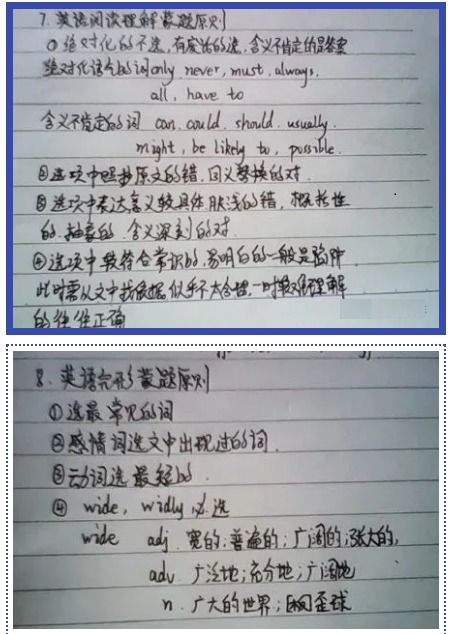 7. 英语阅读理解蒙题原则
①绝对化的不选,有废话的选,含义不肯定的是答案
绝对化语气的词only, never, must, always,
all, have to
含义不肯定的词 can, could, should, usually,
might, be likely to, possible.
②选项中照抄原文的错,同义替换的对.
③选项中表达意义较具体肤浅的错,概括性
的.抽象的.含义深刻的对.
④选项中较符合常识的,易明白的一般是陷阱
此时需从文中找依据,似乎不大合理,一时难以理解
的往往正确
8. 英语完形蒙题原则
①选最常见的词
②感情词选文中出现过的词.
③动词选最短的.
④ wide, widly 必选
wide adj. 宽的;普遍的;广阔的;张大的,
adv. 广泛地;充分地;广阔地
n. 广大的世界;歪球